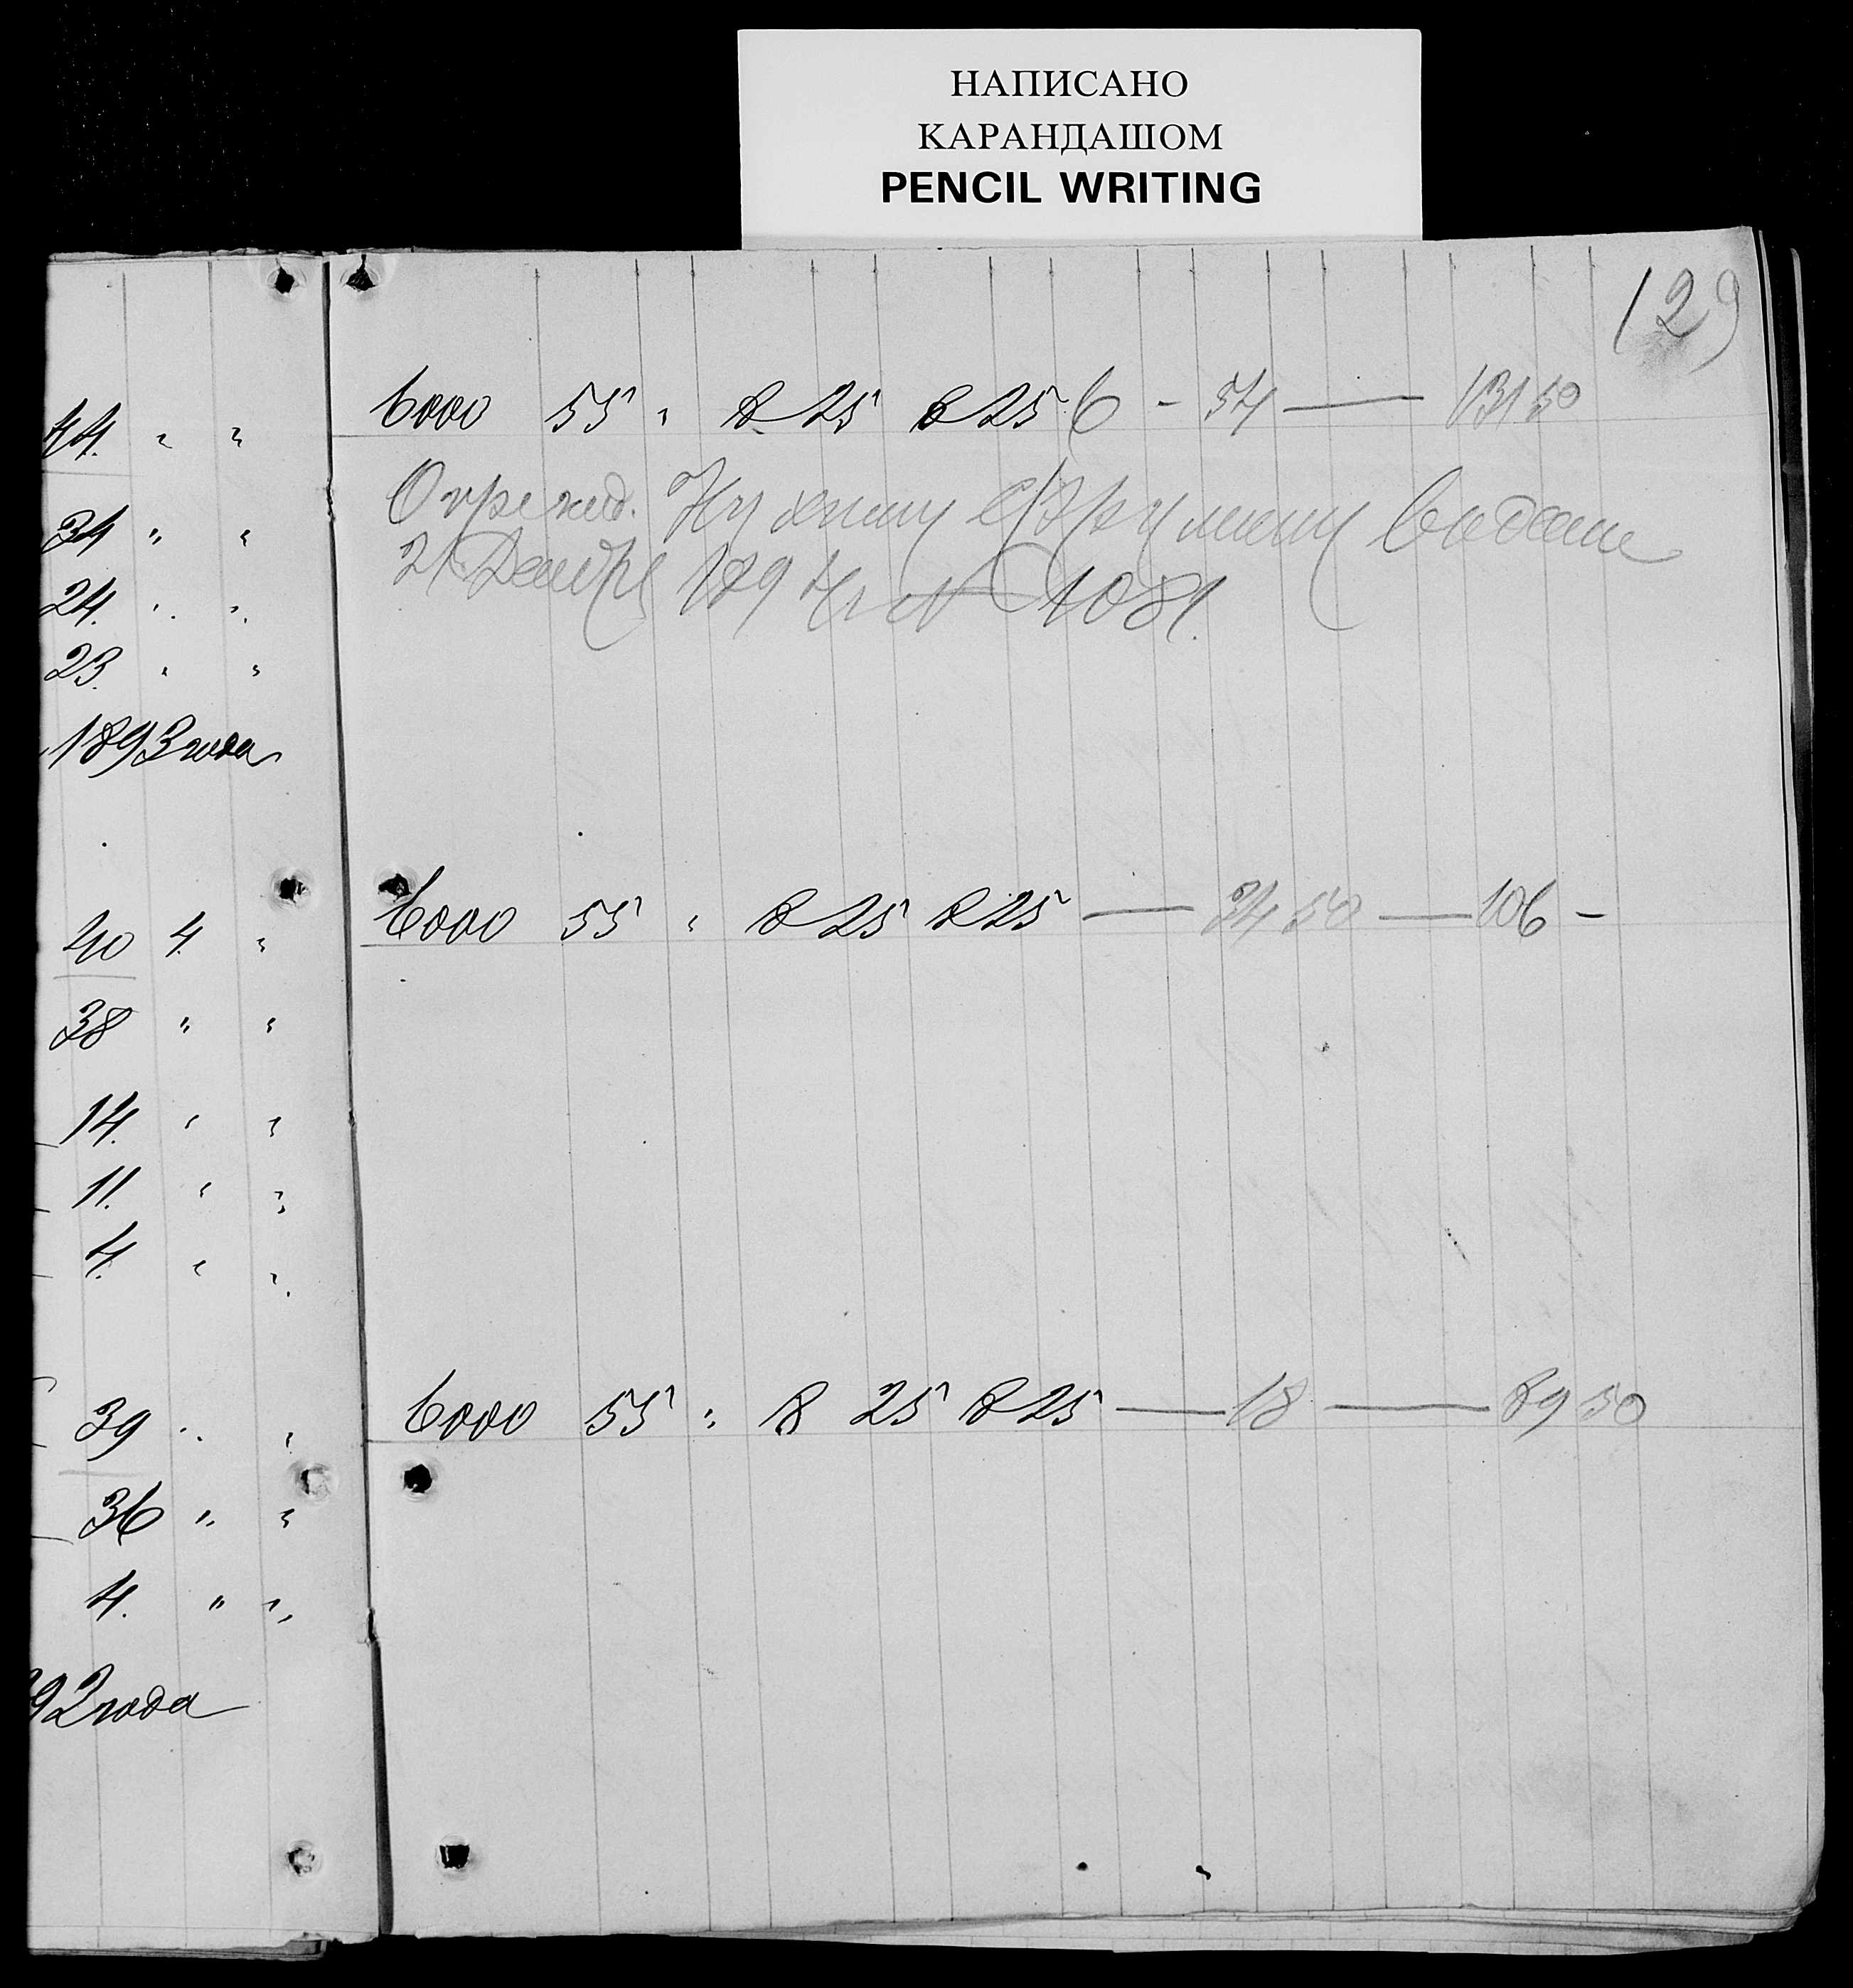 НАПИСАНО
КАРАНДАШОМ
PENCIL WRITING
129
44. " "
34 " "
24. " "
23. " "
1893 года
40 4. "
38 " "
14. " "
11. " "
4. " "
39 " "
36 " "
4. " "
92 года
6000 55 " 8 25 8 25 6 - 54 — 131 50
21 Декабря 1894 г. № 1081.
6000 55 " 8 25 8 25 — 34 50 — 106 -
6000 55 " 8 25 8 25 — 18 — 89 50